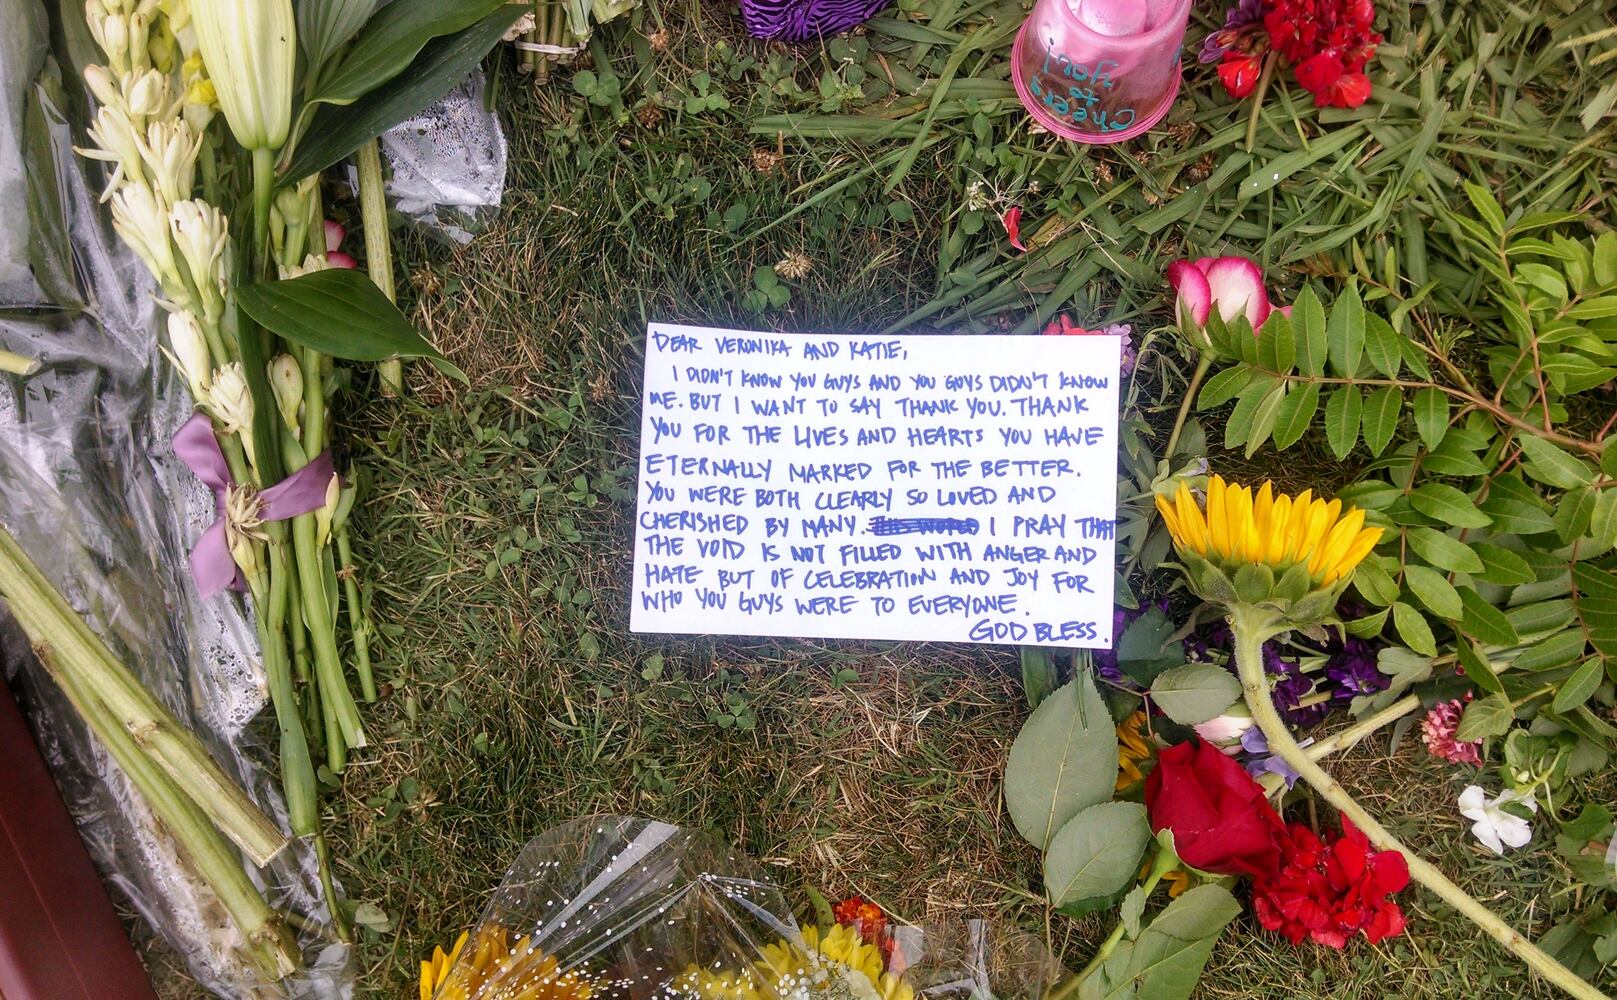 Cheers
to
you!
DEAR VERONIKA AND KATIE,
I DIDN'T KNOW YOU GUYS AND YOU GUYS DIDN'T KNOW
ME. BUT I WANT TO SAY THANK YOU. THANK
YOU FOR THE LIVES AND HEARTS YOU HAVE
ETERNALLY MARKED FOR THE BETTER.
YOU WERE BOTH CLEARLY SO LOVED AND
CHERISHED BY MANY. I PRAY THAT
THE VOID IS NOT FILLED WITH ANGER AND
HATE BUT OF CELEBRATION AND JOY FOR
WHO YOU GUYS WERE TO EVERYONE.
GOD BLESS.